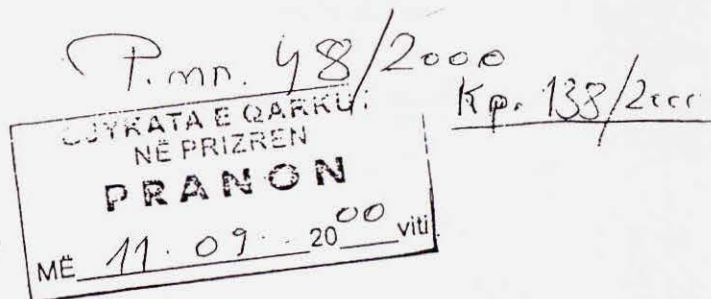 P.mn. 48/2000
Kp. 138/2000
GJYKATA E QARKUT
NË PRIZREN
PRANON
MË 11. 09. 2000 viti